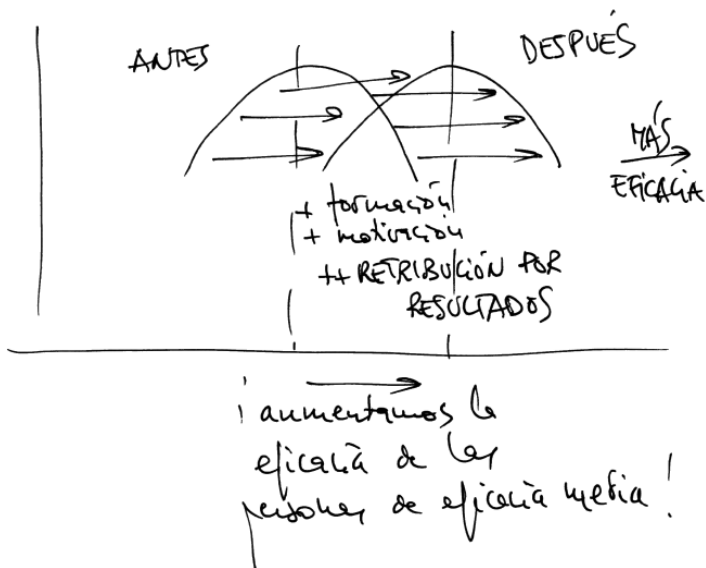 ANTES
DESPUÉS
MÁS
EFICACIA
+ formación
+ motivación
++ RETRIBUCIÓN POR
RESULTADOS
¡aumentamos la
eficacia de las
personas de eficacia media!